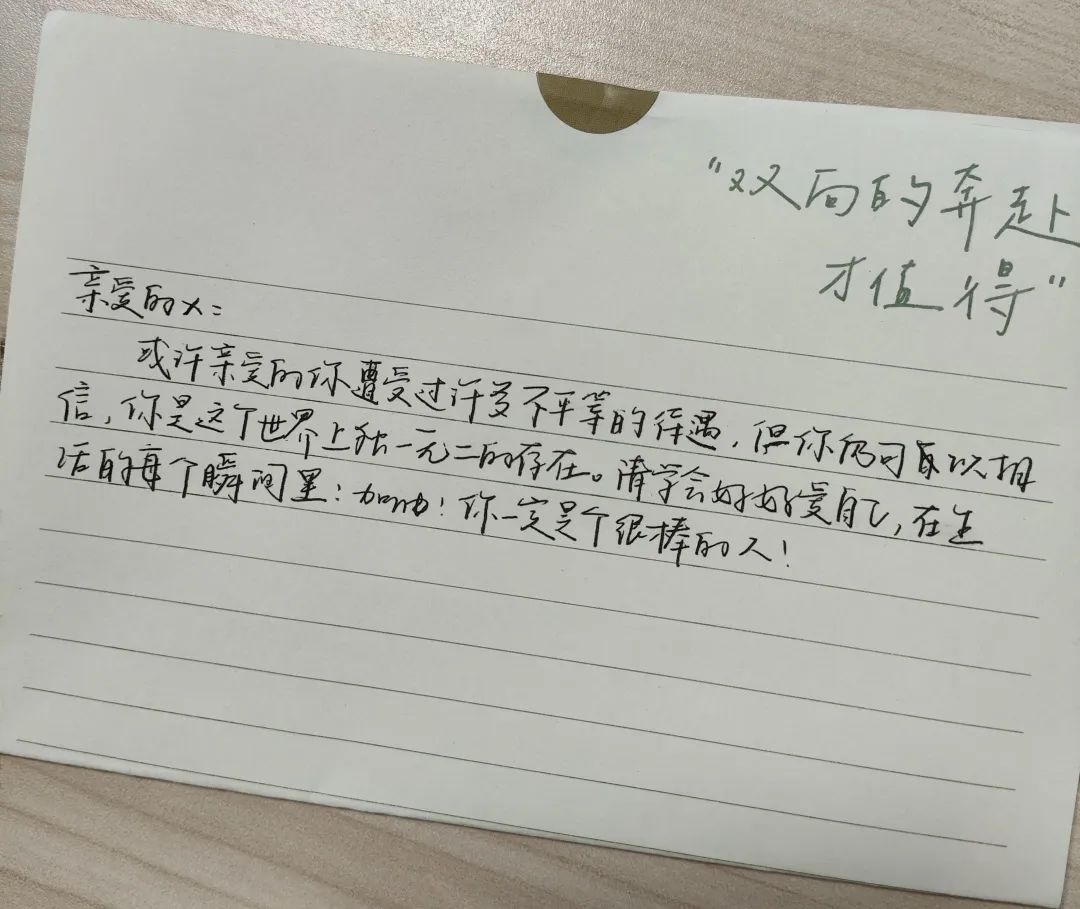 “双向的奔赴
才值得”
亲爱的X：
或许亲爱的你遭受过许多不平等的待遇，但你仍可以相
信，你是这个世界上独一无二的存在。请学会好好爱自己，在生
活的每个瞬间里：加油！你一定是个很棒的人！